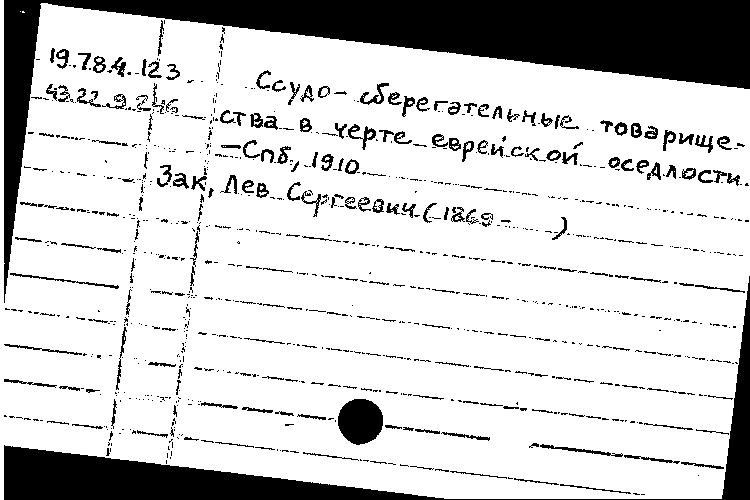 19.7.8.4.123.
43.22.9.246
Ссудо-сберегательные товарище-
ства в черте еврейской оседлости.
—Спб., 1910
Зак, Лев Сергеевич (1869 -    )